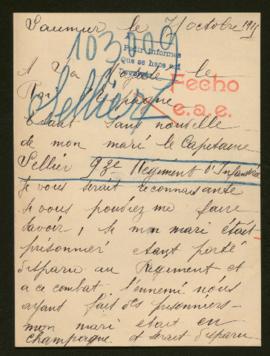 Saumur le 7 octobre 1915
103.000
Pedir Informes
Que se hace
A Sa Majesté le
Roi d'Espagne
Fecho
e.a.e.
Sellier
Etant sans nouvelle
de mon mari le Capitaine
Sellier 93e Regiment d'Infanterie
je vous serait reconnaissante
si vous pouviez me faire
savoir, si mon mari était
prisonnier etant porté
disparu au Regiment et
a ce combat l'ennemi nous
ayant fait des prisonniers
mon mari etait en
champagne et serait disparu